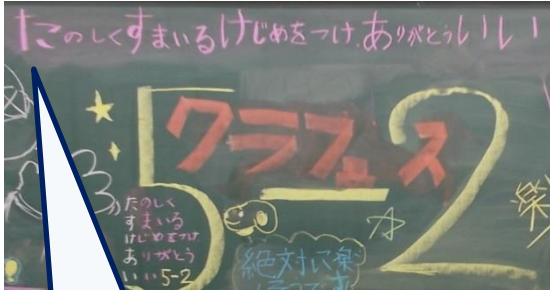 たのしくすまいるけじめをつけ、ありがとういい
5-2
クラフェス
楽
たのしく
すまいる
けじめをつけ
ありがとう
いい5-2
絶対に楽